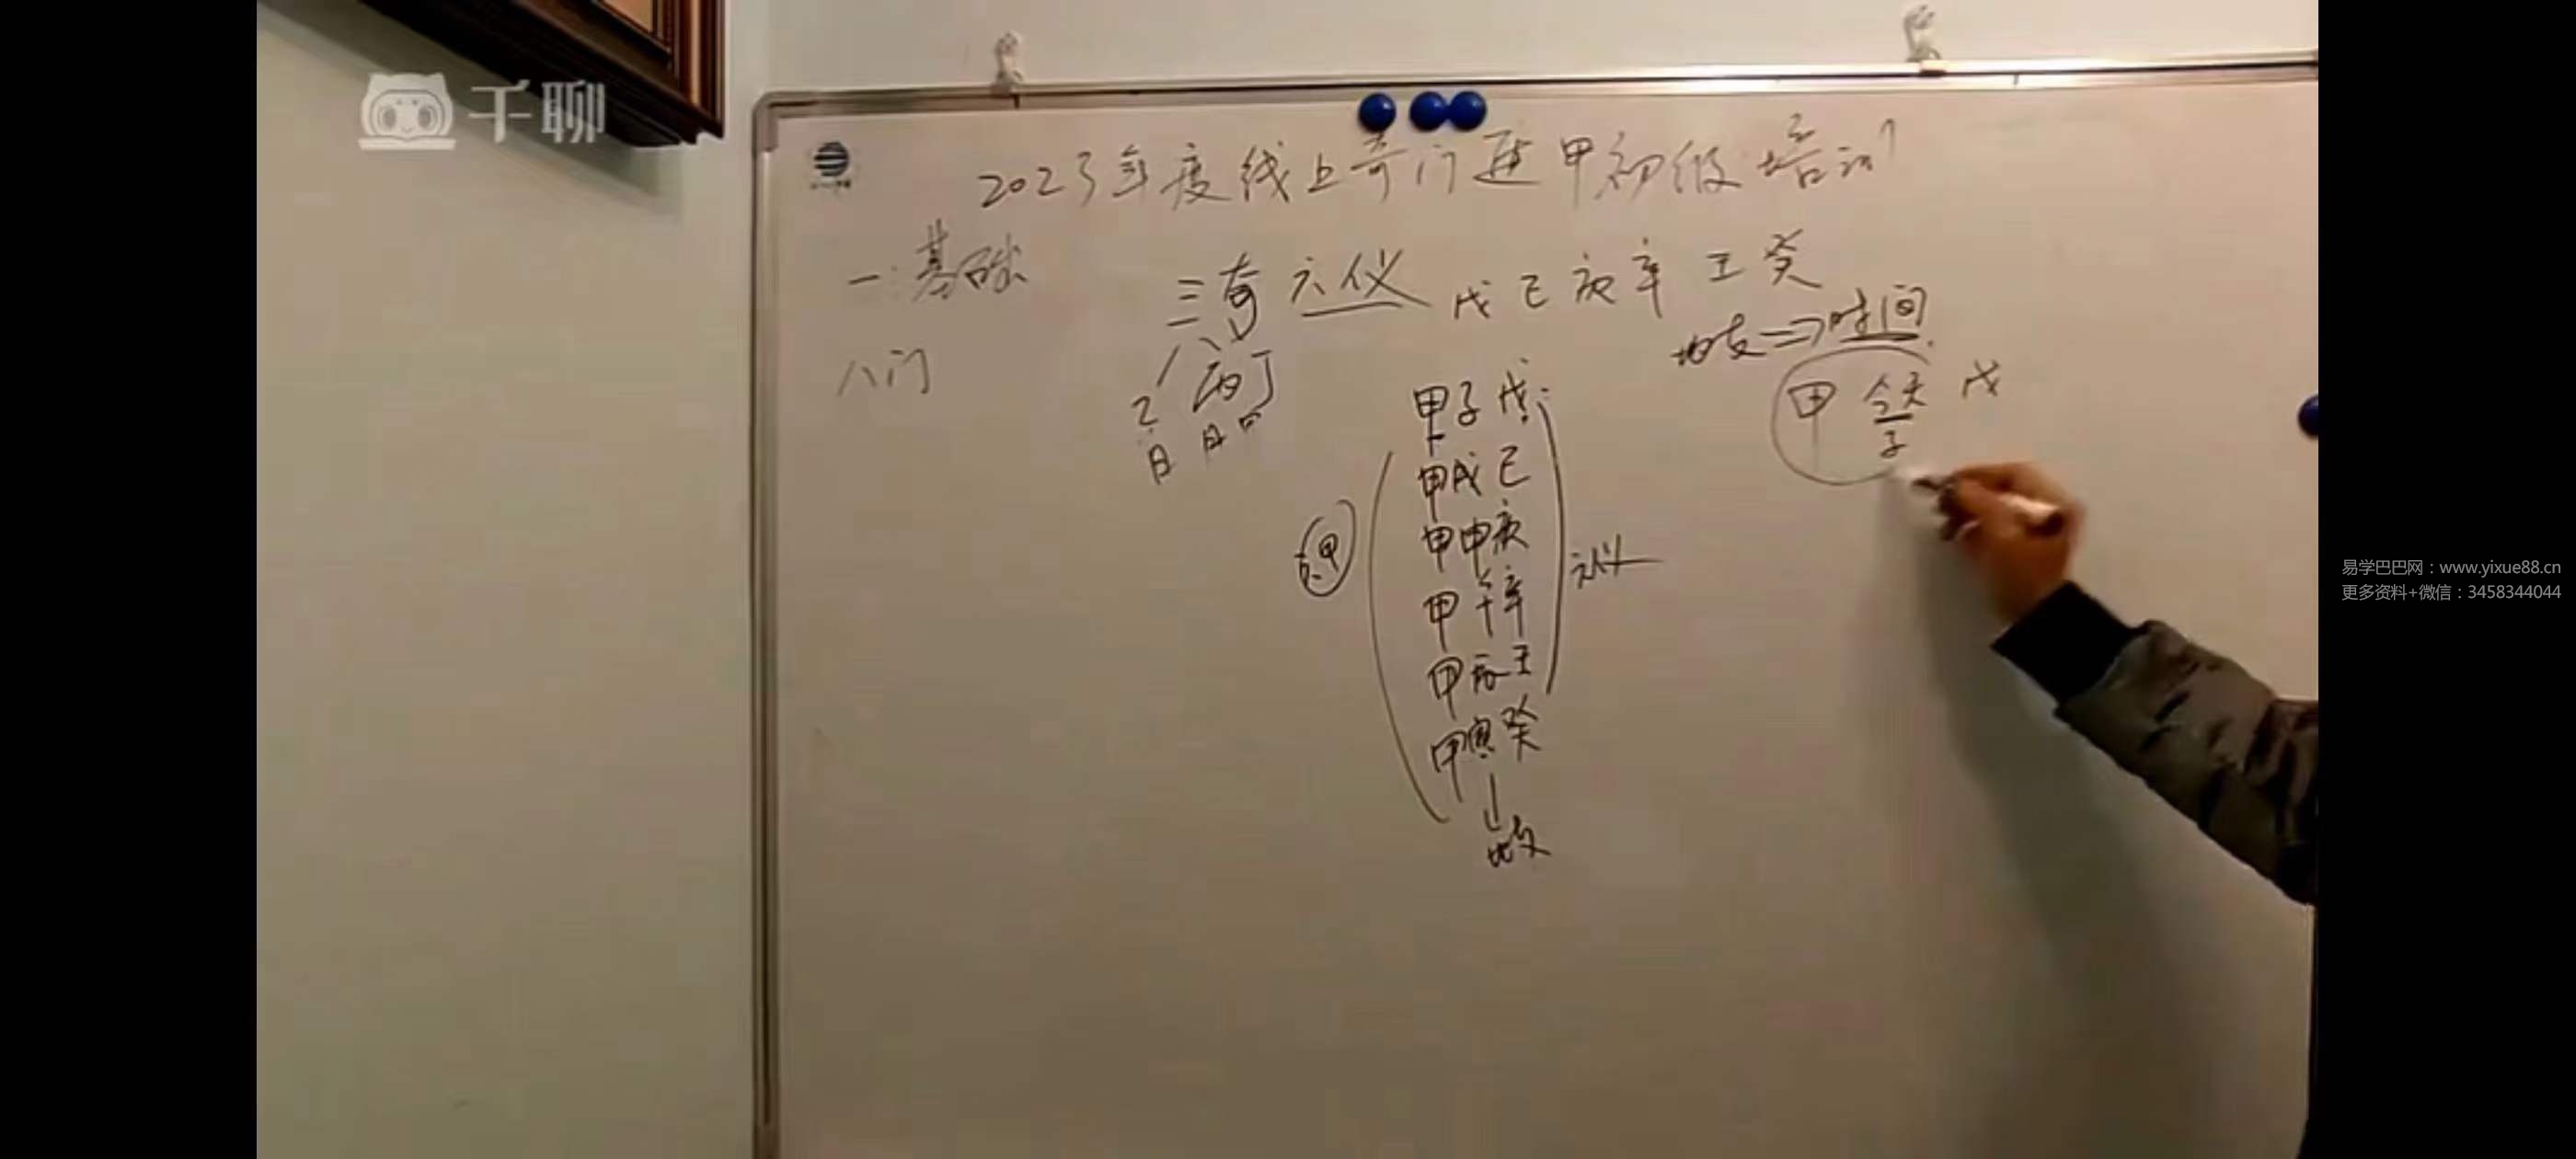 千聊
2023年度线上奇门遁甲初级培训
一:基础
三奇 六仪 戊己庚辛壬癸
地支=>时间
八门
乙 丙 丁
日 月
甲 今天 戊
子
甲子戊
甲戌己
甲申庚
甲午辛
甲辰壬
甲寅癸
六甲
六仪
地支
易学巴巴网：www.yixue88.cn
更多资料+微信：3458344044